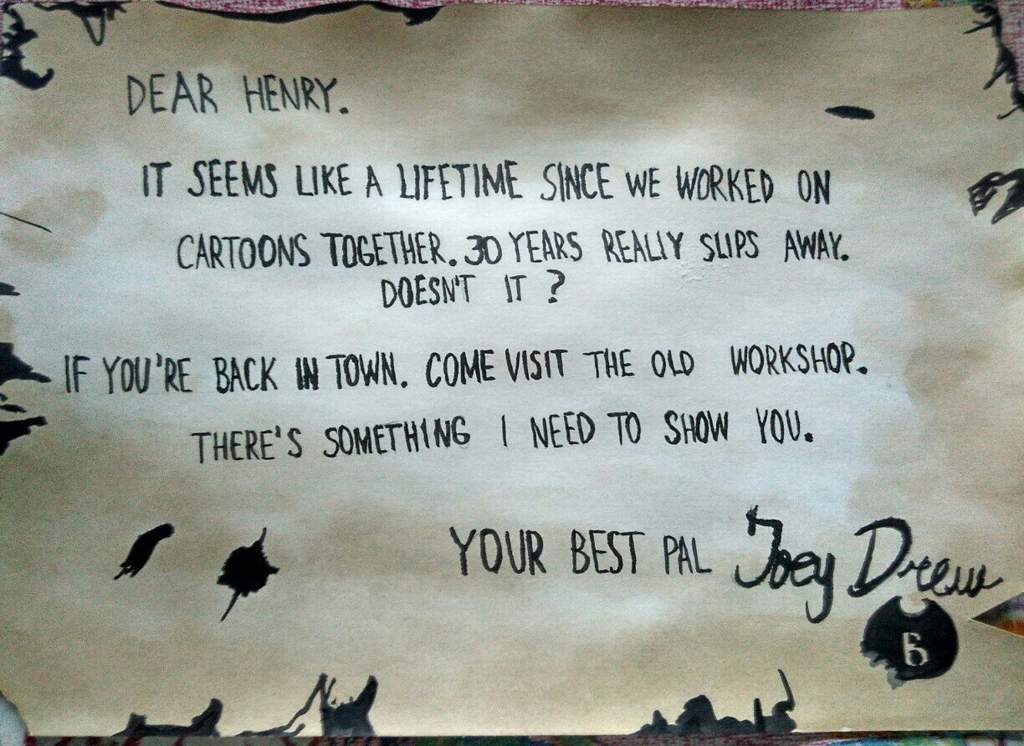 DEAR HENRY.
IT SEEMS LIKE A LIFETIME SINCE WE WORKED ON
CARTOONS TOGETHER. 30 YEARS REALLY SLIPS AWAY.
DOESN'T IT ?
IF YOU'RE BACK IN TOWN. COME VISIT THE OLD WORKSHOP.
THERE'S SOMETHING I NEED TO SHOW YOU.
YOUR BEST PAL Joey Drew